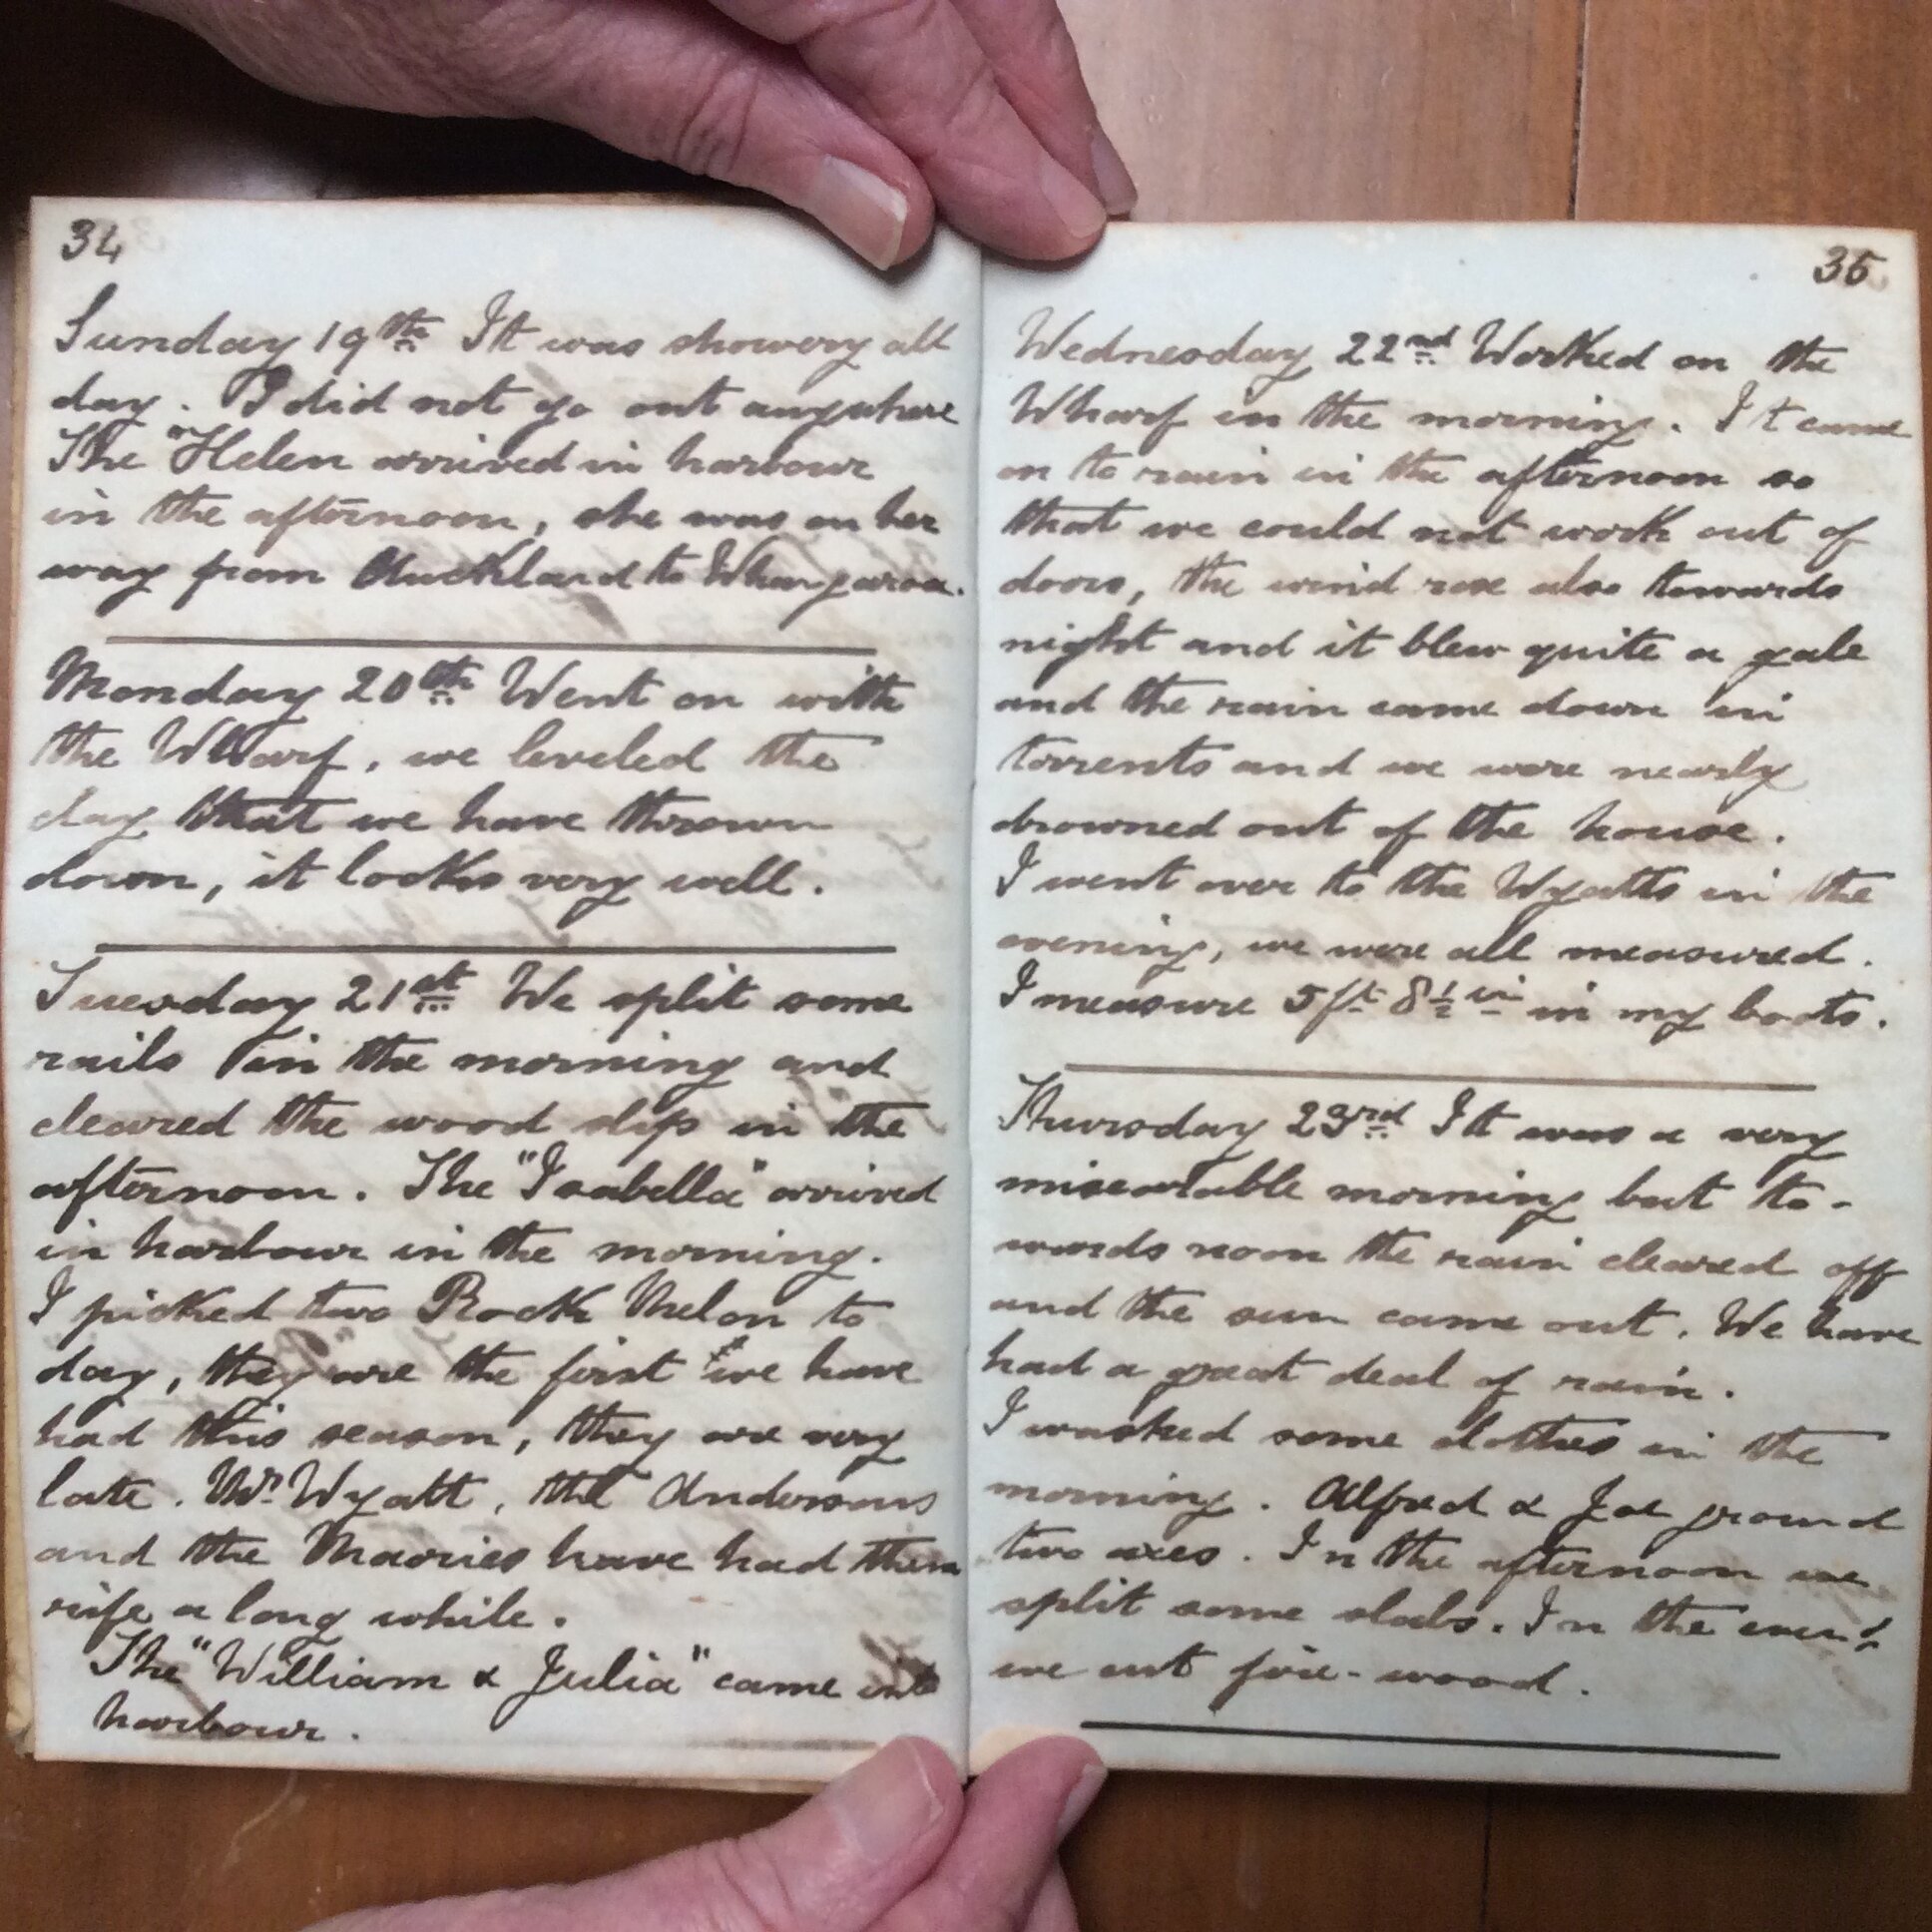 34
Sunday 19th It was showery all
day. I did not go out anywhere
The "Helen arrived in harbour
in the afternoon, she was on her
way from Auckland to Whangaroa.
Monday 20th Went on with
the Wharf, we leveled the
clay that we have thrown
down, it looks very well.
Tuesday 21st We split some
rails in the morning and
cleared the wood slip in the
afternoon. The "Isabella" arrived
in harbour in the morning.
I picked two Rock Melon to
day, they are the first we have
had this season, they are very
late. Mr. Wyatt, the Andersons
and the Maories have had them
ripe a long while.
The "William & Julia" came into
harbour.
35
Wednesday 22nd Worked on the
Wharf in the morning. It came
on to rain in the afternoon so
that we could not work out of
doors, the wind rose also towards
night and it blew quite a gale
and the rain came down in
torrents and we were nearly
drowned out of the house.
I went over to the Wyatts in the
evening, we were all measured.
I measure 5ft 8½in in my boots.
Thursday 23rd It was a very
misearable morning but to-
wards noon the rain cleared off
and the sun came out. We have
had a great deal of rain.
I washed some clothes in the
morning. Alfred & Joe ground
two axes. In the afternoon we
split some slabs. In the
we cut fire-wood.